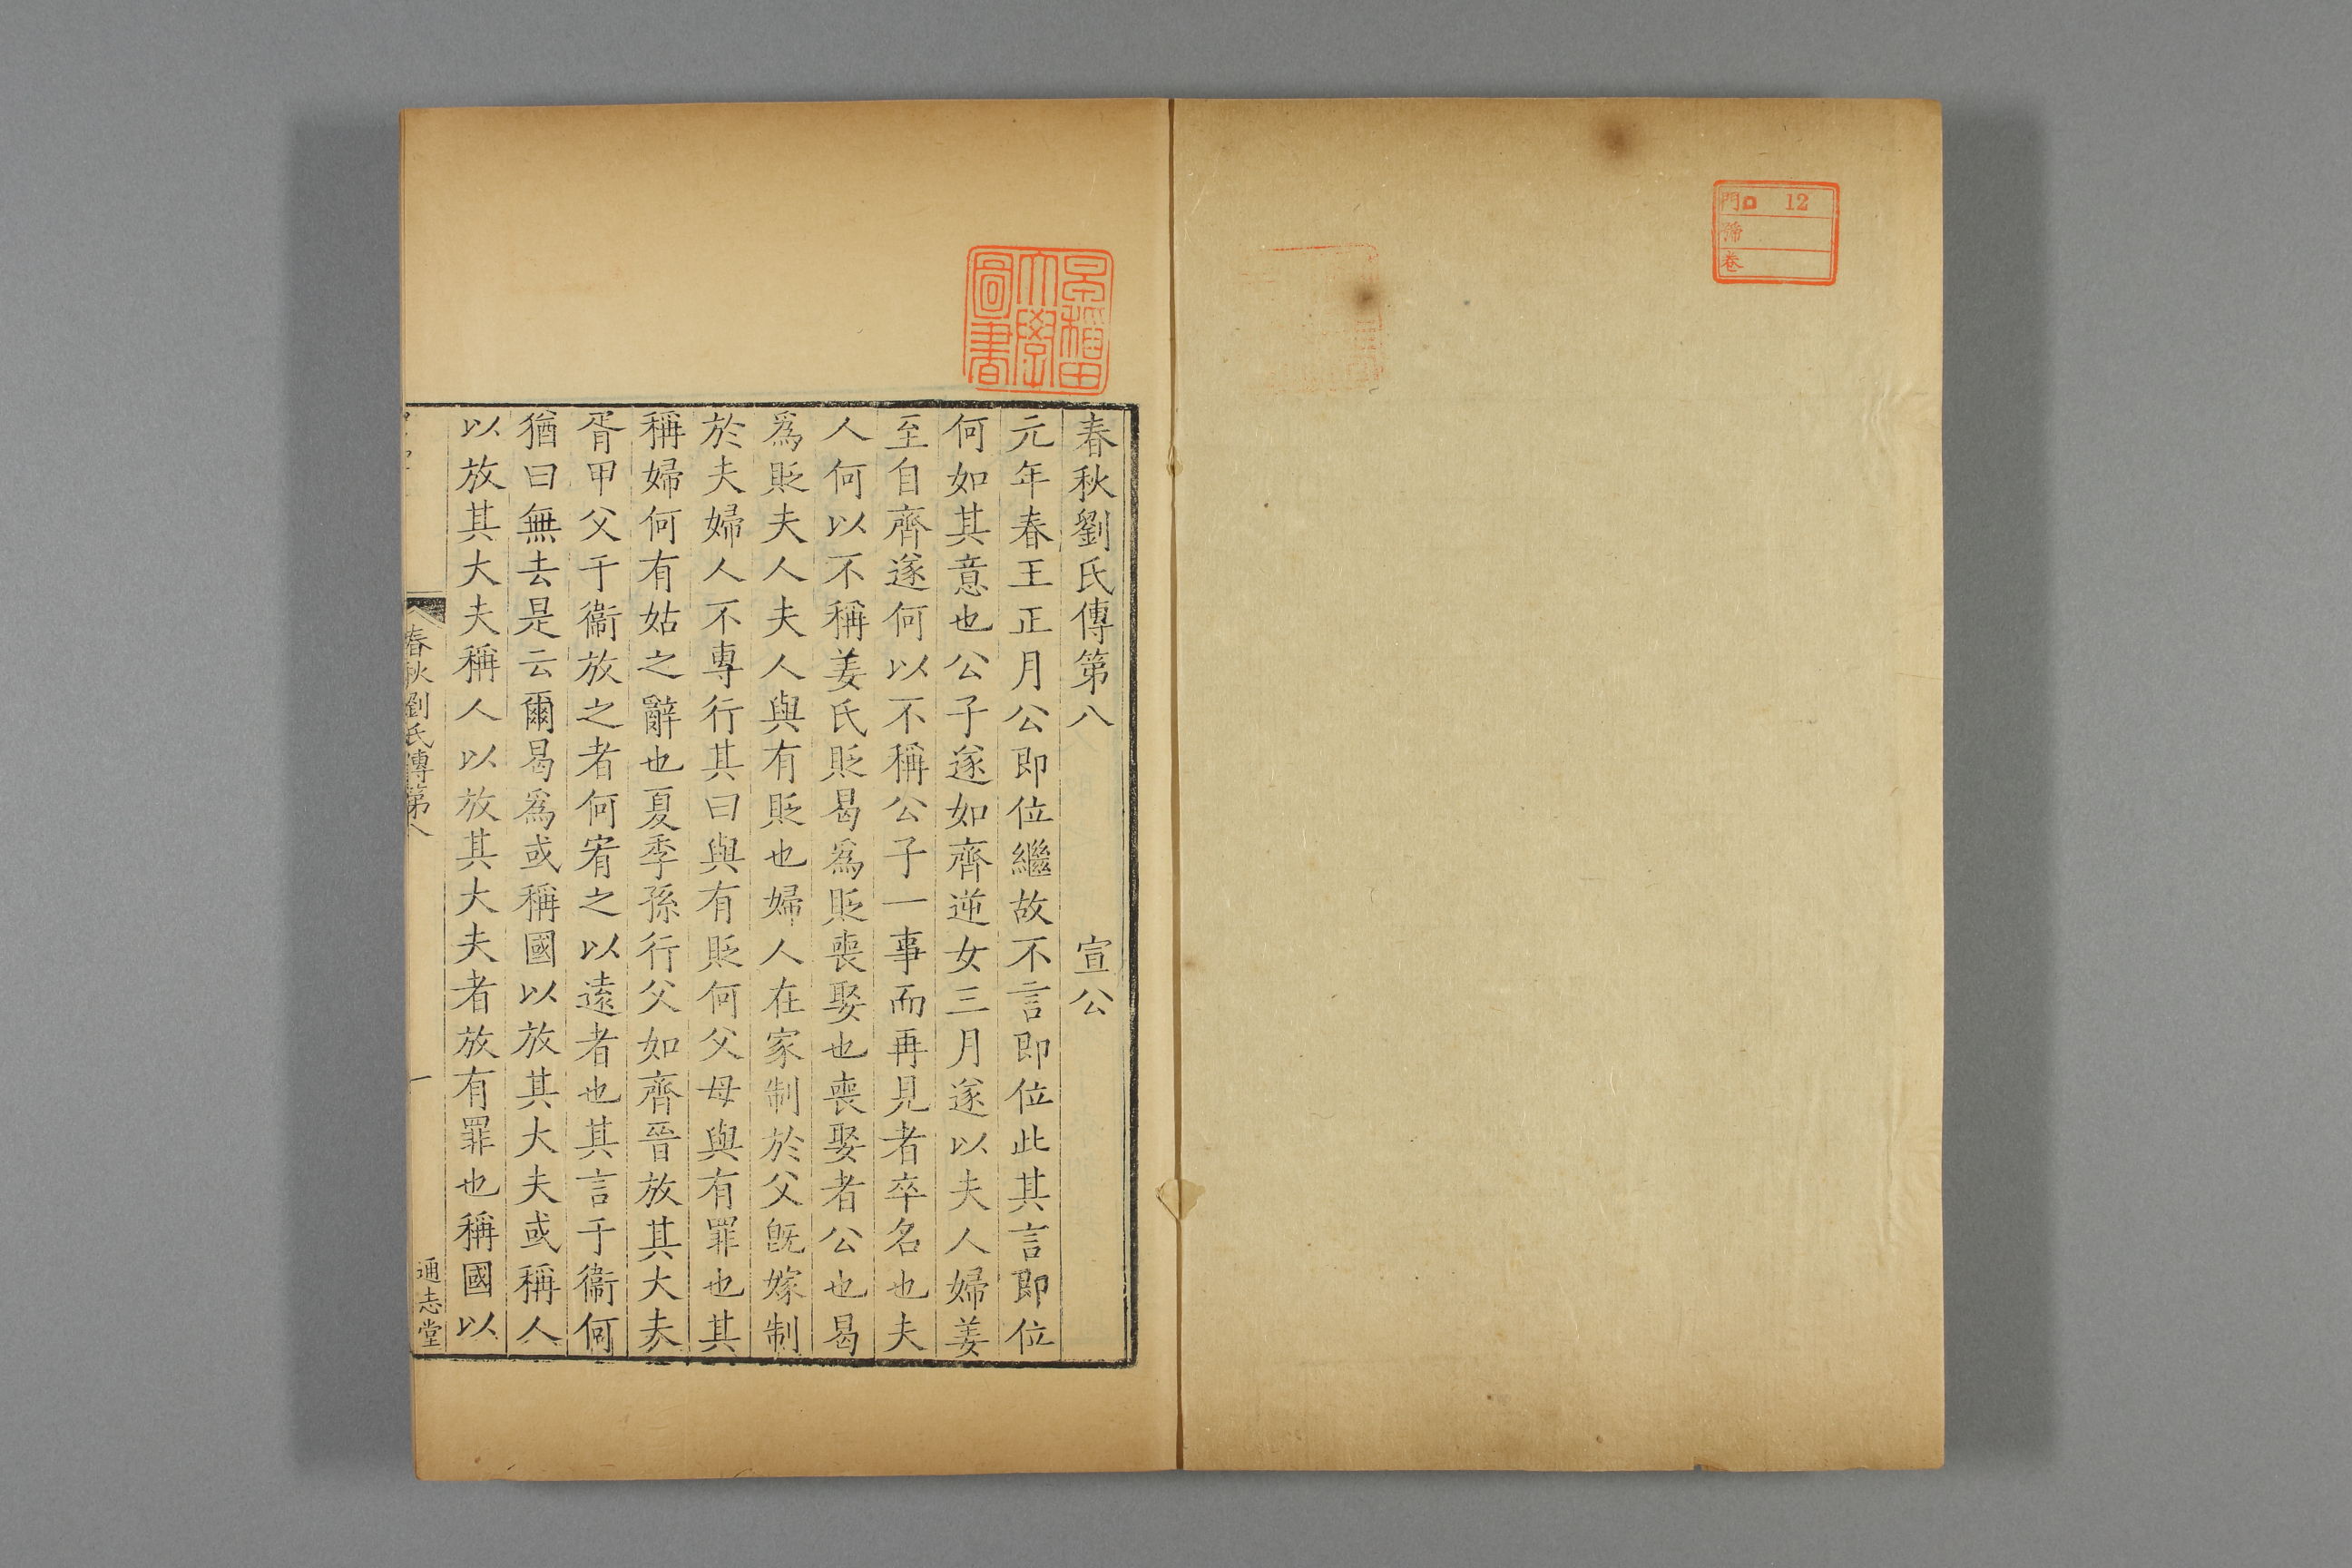 門ロ 12
號
卷
早稻田大學圖書
春秋劉氏傳第八 宣公
元年春王正月公即位繼故不言即位此其言即位
何如其意也公子遂如齊逆女三月遂以夫人婦姜
至自齊遂何以不稱公子一事而再見者卒名也夫
人何以不稱姜氏貶曷爲貶喪娶也喪娶者公也曷
爲貶夫人夫人與有貶也婦人在家制於父既嫁制
於夫婦人不專行其曰與有貶何父母與有罪也其
稱婦何有姑之辭也夏季孫行父如齊晉放其大夫
胥甲父于衞放之者何宥之以遠者也其言于衞何
猶曰無去是云爾曷爲或稱國以放其大夫或稱人
以放其大夫稱人以放其大夫者放有罪也稱國以
春秋劉氏傳第八 一 通志堂